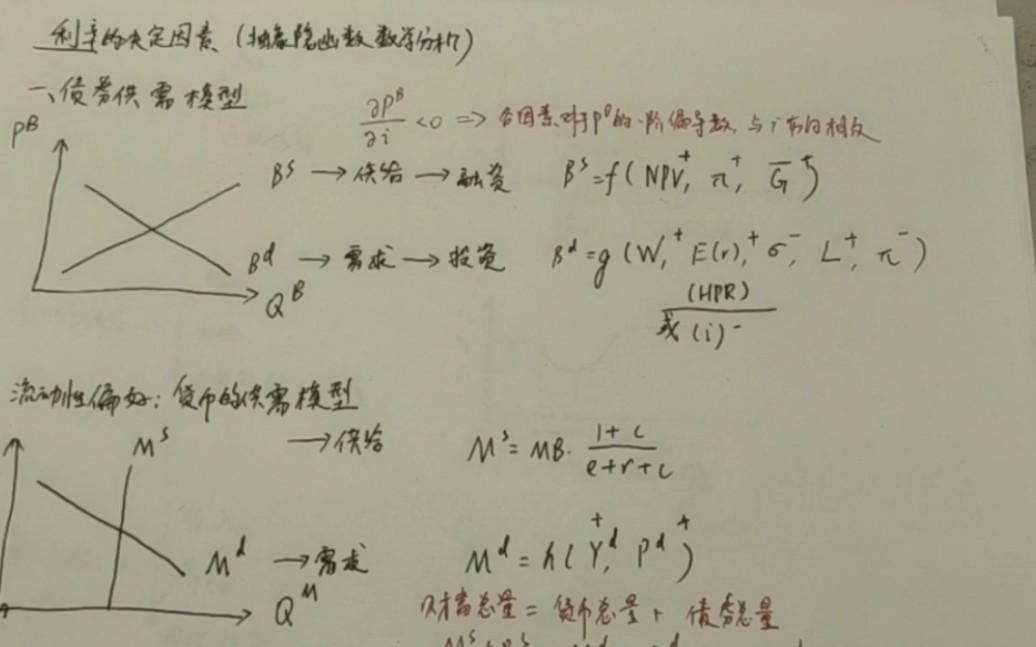 利率的决定因素（抽象隐函数数学分析）
一、债券供需模型
∂P^B/∂i <0 => 各因素对于P^B的一阶偏导数,与i方向相反
P^B
B^s → 供给 → 融资 B^s=f(NPV^+, π^+, G̅^+)
B^d → 需求 → 投资 B^d=g(W,^+ E(r),^+ σ^-, L^+, π^-)
Q^B (HPR)
或(i)^-
流动性偏好：货币的供需模型
M^s → 供给 M^s=MB·(1+c)/(e+r+c)
M^d → 需求 M^d=h(Y^d,^+ P^d^+)
Q^M
财富总量=货币总量+债券总量